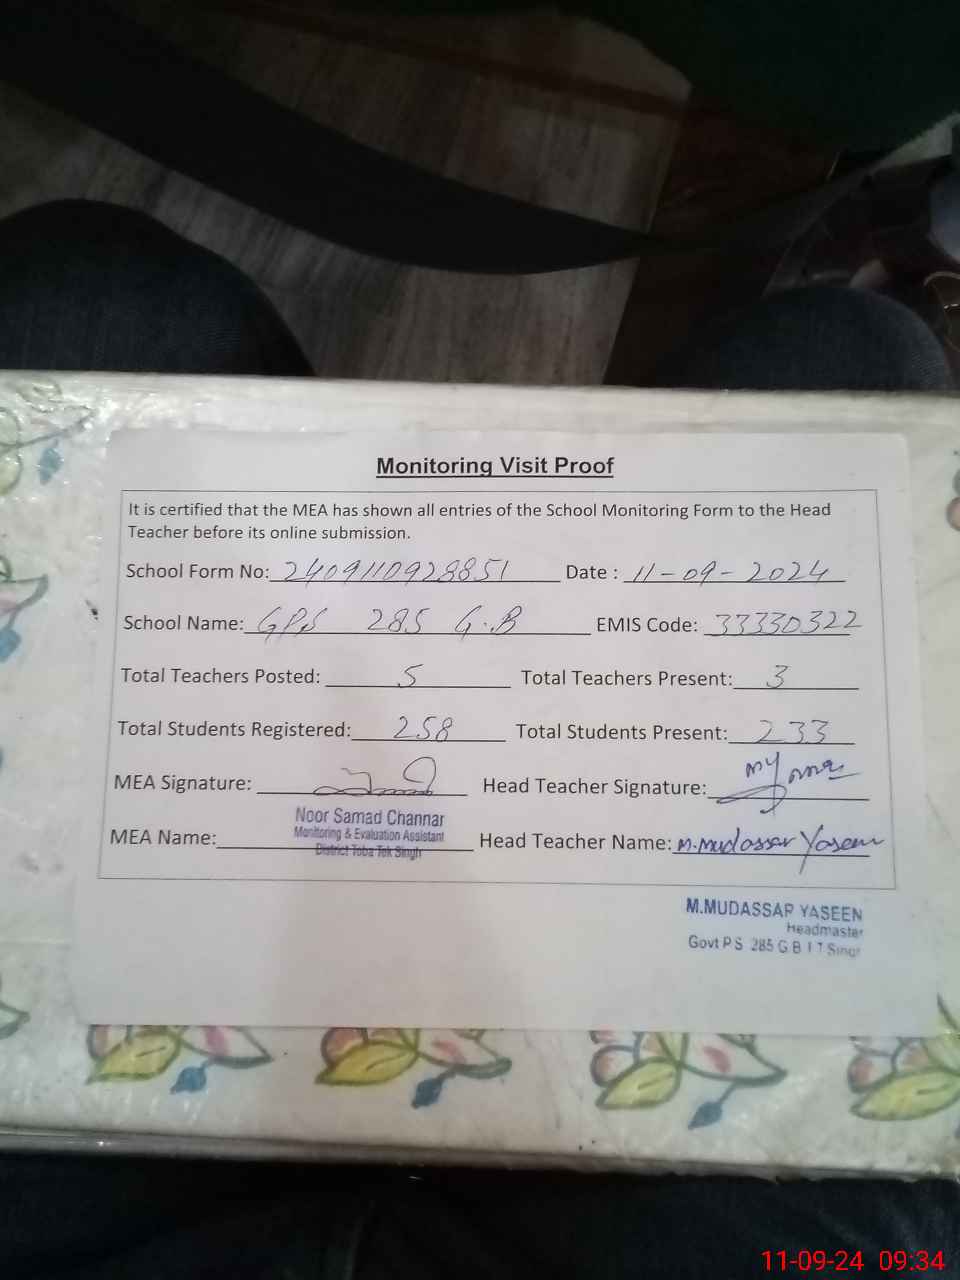 Monitoring Visit Proof
It is certified that the MEA has shown all entries of the School Monitoring Form to the Head
Teacher before its online submission.
School Form No: 2409110928851 Date : 11-09-2024
School Name: GPS 285 G.B EMIS Code: 33330322
Total Teachers Posted: 5 Total Teachers Present: 3
Total Students Registered: 258 Total Students Present: 233
MEA Signature: Head Teacher Signature:
MEA Name: Noor Samad Channar Head Teacher Name: M.Mudassar Yaseen
Monitoring & Evaluation Assistant
District Toba Tek Singh
M.MUDASSAR YASEEN
Headmaster
Govt P S 285 G B T T Singh
11-09-24 09:34